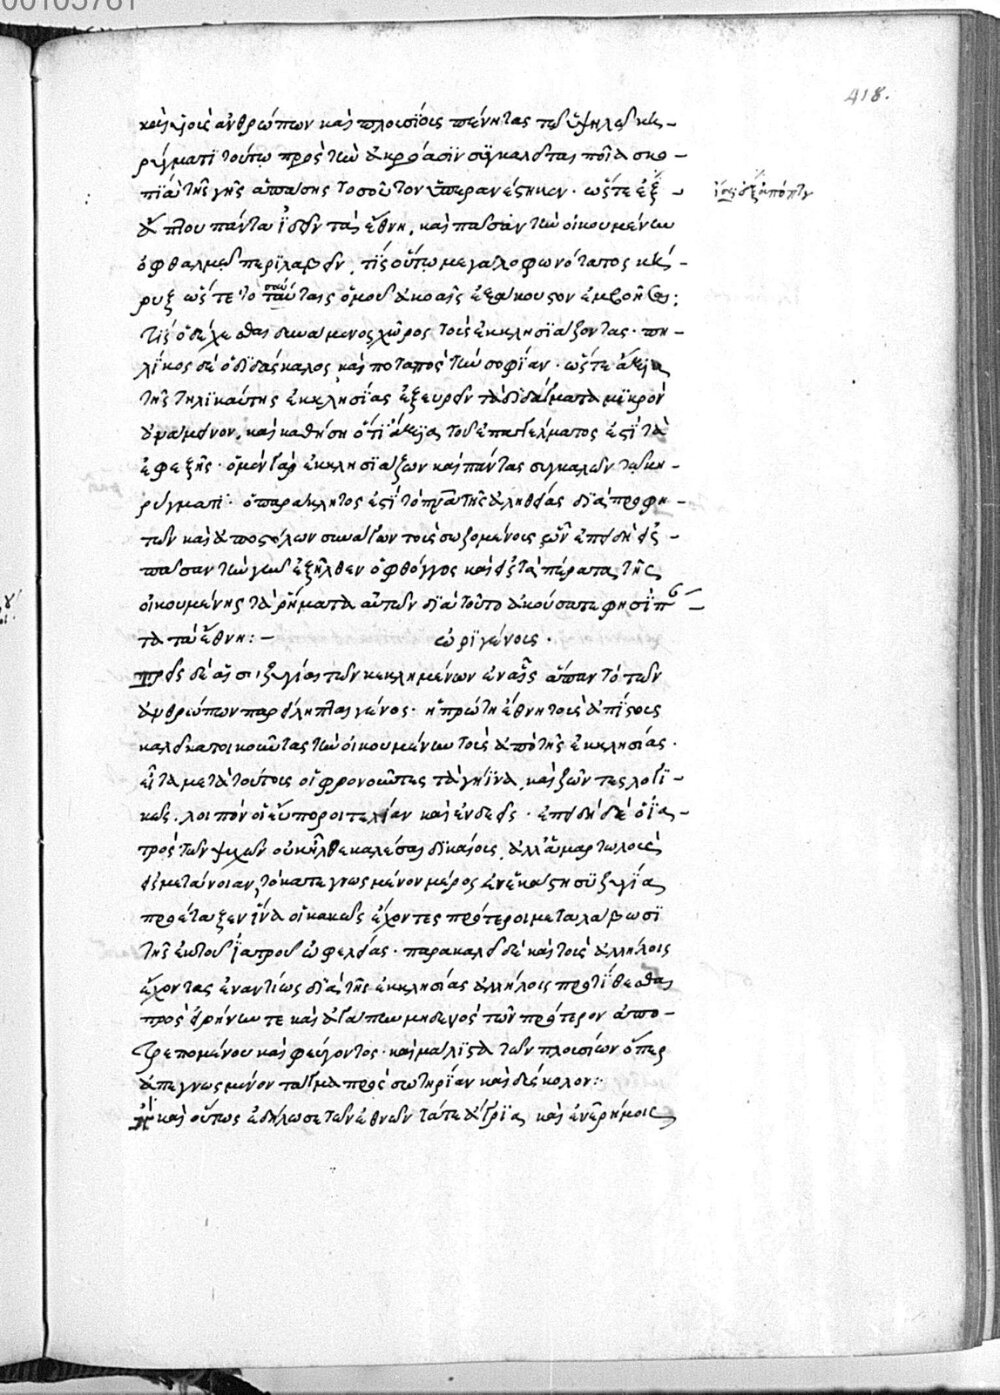 00105761
418.
καὶ υἱοὺς ἀνθρώπων καὶ πλουσίους πένητας τῷ ὑψηλῷ κη-
ρύγματι τούτῳ πρὸς τὴν ἀκρόασιν συγκαλεῖται ποία σκο-
πιὰ τῆς γῆς ἁπάσης τοσοῦτον ὑπερανέστηκεν. ὥστε ἐξ
ἀόπτου πάντα ἰδεῖν τὰ ἔθνη, καὶ πᾶσαν τὴν οἰκουμένην
ὀφθαλμῷ περιλαβεῖν, τίς οὕτω μεγαλοφωνότατος κή-
ρυξ ὥστε τοσαύταις ὁμοῦ ἀκοαῖς ἐξάκουστον ἐμβοῆσαι;
τίς ὁ δέχεσθαι δυνάμενος χῶρος τοὺς ἐκκλησιάζοντας. πη-
λίκος δὲ ὁ διδάσκαλος καὶ ποταπὸς τὴν σοφίαν. ὥστε ἄξια
τῆς τηλικαύτης ἐκκλησίας ἐξευρεῖν τὰ διδάγματα μικρὸν
ἀναμεῖνον, καὶ καθήση ὅτι ἄξια τοῦ ἐπαγγέλματος ἐστὶ τὰ
ἐφεξῆς. ὁ μὲν γὰρ ἐκκλησιάζων καὶ πάντας συγκαλῶν τῷ κη-
ρύγματι. ὁ παράκλητος ἐστὶ τὸ πνα τῆς ἀληθείας διὰ προφη-
τῶν καὶ ἀποστόλων συνάγων τοὺς σωζομένους ὧν ἐπειδὴ εἰς
πᾶσαν τὴν γῆν ἐξῆλθεν ὁ φθόγγος καὶ εἰς τὰ πέρατα τῆς
οἰκουμένης τὰ ῥήματα αὐτῶν διὰ τοῦτο ἀκούσατε φησὶ πάν-
τα τὰ ἔθνη:-
ὠριγένους.
πρὸς δὲ αἱ συζυγίαι τῶν κεκλημένων ἐν αἷς ἅπαν τὸ τῶν
ἀνθρώπων παρείληπται γένος. ἡ πρώτη ἔθνη τοὺς ἀπίστους
καλεῖ κατοικοῦντας τὴν οἰκουμένην τοὺς ἀπὸ τῆς ἐκκλησίας.
εἶτα μετὰ τούτους οἱ φρονοῦντες τὰ γήϊνα, καὶ ζῶντες λογι-
κῶς. λοιπὸν οἱ εὔποροι τελείαν καὶ ἐνδεεῖς. ἐπειδὴ δὲ ὁ ἰα-
τρὸς τῶν ψυχῶν οὐκ ἦλθε καλέσαι δικαίους, ἀλλ' ἁμαρτωλοὺς
εἰς μετάνοιαν, τὸ κατεγνωσμένον μέρος ἐν ἑκάστῃ συζυγίᾳ
προέταξεν ἵνα οἱ κακῶς ἔχοντες πρότεροι μεταλάβωσι
τῆς ἐκ τοῦ ἰατροῦ ὠφελείας. παρακαλεῖ δὲ καὶ τοὺς ἀλλήλοις
ἔχοντας ἐναντίως διὰ τῆς ἐκκλησίας ἀλλήλοις προστίθεσθαι
πρὸς εἰρήνην τε καὶ ἀγάπην μηδενὸς τῶν πρότερον ἀπο-
τρεπομένου καὶ φεύγοντος. καὶ μάλιστα τῶν πλουσίων ὅπερ
ἀπεγνωσμένον τάγμα πρὸς σωτηρίαν καὶ δύσκολον:-
καὶ οὕτως ἐδήλωσε τῶν ἐθνῶν τά τε ἄγρια καὶ ἐν ἐρήμοις